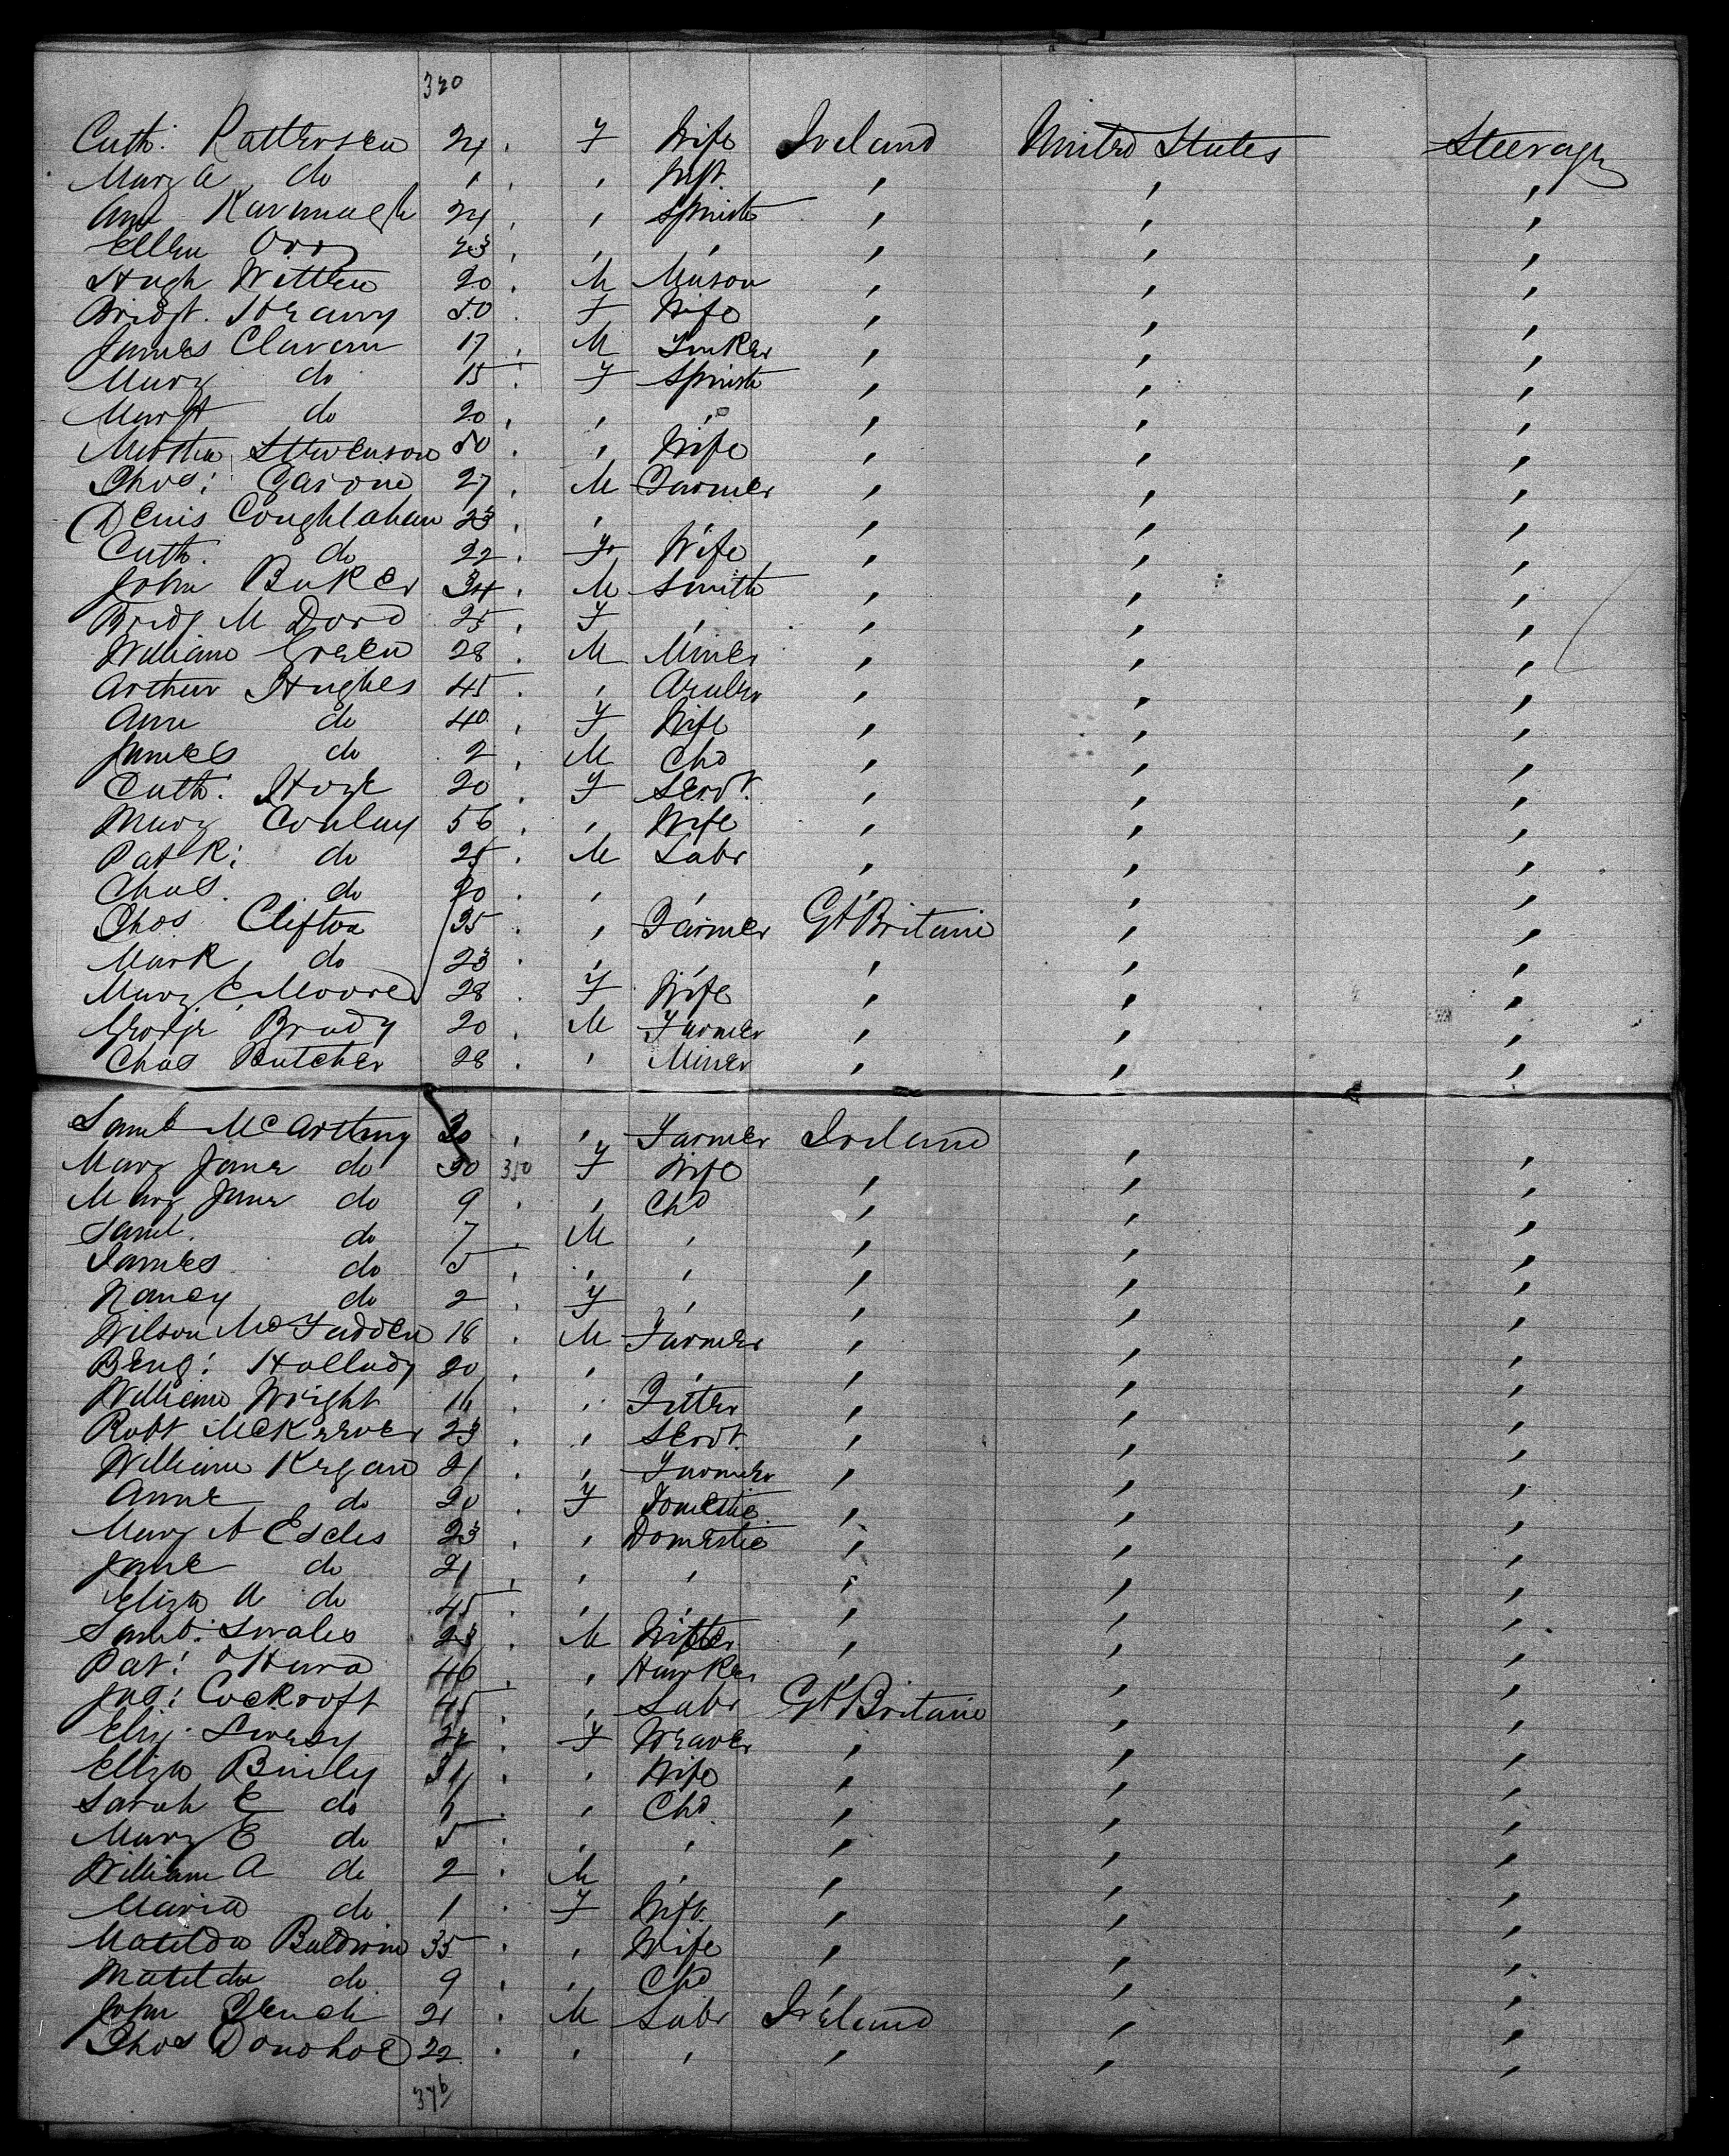 320
Cath: Patterson 24 . F Wife Ireland United States Steerage
Mary A do 1 , , Inft. , , ,
Ann Kavanagh 24 , , Spinstr , , ,
Ellen Orr 23 , , , , , ,
Hugh Witten 20 . M Mason , , ,
Bridgt. Heany 50 . F Wife , , ,
James Clavern 17 , M Tinker , , ,
Mary do 15 . F Spinstr , , ,
Margt do 20 , , , , , ,
Stevenson 50 . , Wife , , ,
Thos: 27 , M Farmer , , ,
Denis Coughlahan 23 , , , , , ,
Cath. do 22 . F Wife , , ,
John Baker 34 . M Smith , , ,
Bridg M Dord 25 , F , , , ,
William Green 28 . M Miner , , ,
Arthur Hughes 45 . , , , ,
Ann do 40 , F Wife , , ,
James do 2 , M Chd , , ,
Cath: Hoye 20 . F Servt. , , ,
Mary Conlay 56 , , Wife , , ,
Patk: do 25 . M Labr , , ,
Chas. do 20 . , , , , ,
Thos Clifton 35 . , Farmer Gt Britain , ,
Mark do 23 . , , , , ,
Mary E Moored 28 . F Wife , , ,
George Brady 20 , M Farmer , , ,
Chas Butcher 28 . , Miner , , ,
Saml McCartney 30 , , Farmer Ireland , ,
Mary Jane do 30 350 F Wife , , ,
Mary Jane do 9 . , Chd , , ,
Saml. do 7 . M , , , ,
James do 5 , , , , , ,
Nancy do 2 . F , , , ,
Wilson McFadden 18 . M Farmer , , ,
Benj: Hallady 20 , , , , , ,
William Wright 16 . , Fitter , , ,
Robt McKeever 23 . , Servt. , , ,
William Kegan 21 . , Farmer , , ,
Anne do 20 . F Domestic , , ,
Mary A Escles 23 , , Domestic , , ,
Jane do 21 , , , , , ,
Eliza A do 45 . , , , , ,
Saml: Swales 23 . M , , ,
Pat: OHara 46 . , Hawker , , ,
Jas: Cockroft 45 . , Labr Gt Britain , ,
Eliz. Livesy . F Weaver , , ,
Eliza Baily 34 . , Wife , , ,
Sarah E do 6 . , Chd , , ,
Mary E do 5 . , , , , ,
William A do 2 . M , , , ,
Maria do 1 . F Inft. , , ,
Matilda Baldwin 35 . , Wife , , ,
Matilda do 9 . , Chd , , ,
John 21 . M Labr Ireland , ,
Thos Donohoe 22 . , , , , ,
376